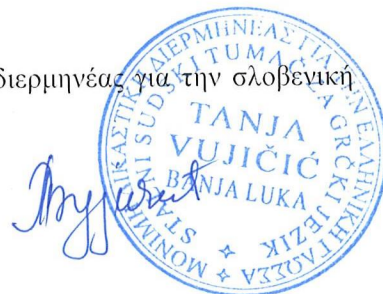 διερμηνέας για την σλοβενική
ΜΟΝΙΜΗ ΔΙΚΑΣΤΙΚΗ ΔΙΕΡΜΗΝΕΑΣ ΓΙΑ ΤΗΝ ΕΛΛΗΝΙΚΗ ΓΛΩΣΣΑ
STALNI SUDSKI TUMAČ ZA GRČKI JEZIK
TANJA
VUJIČIĆ
BANJA LUKA